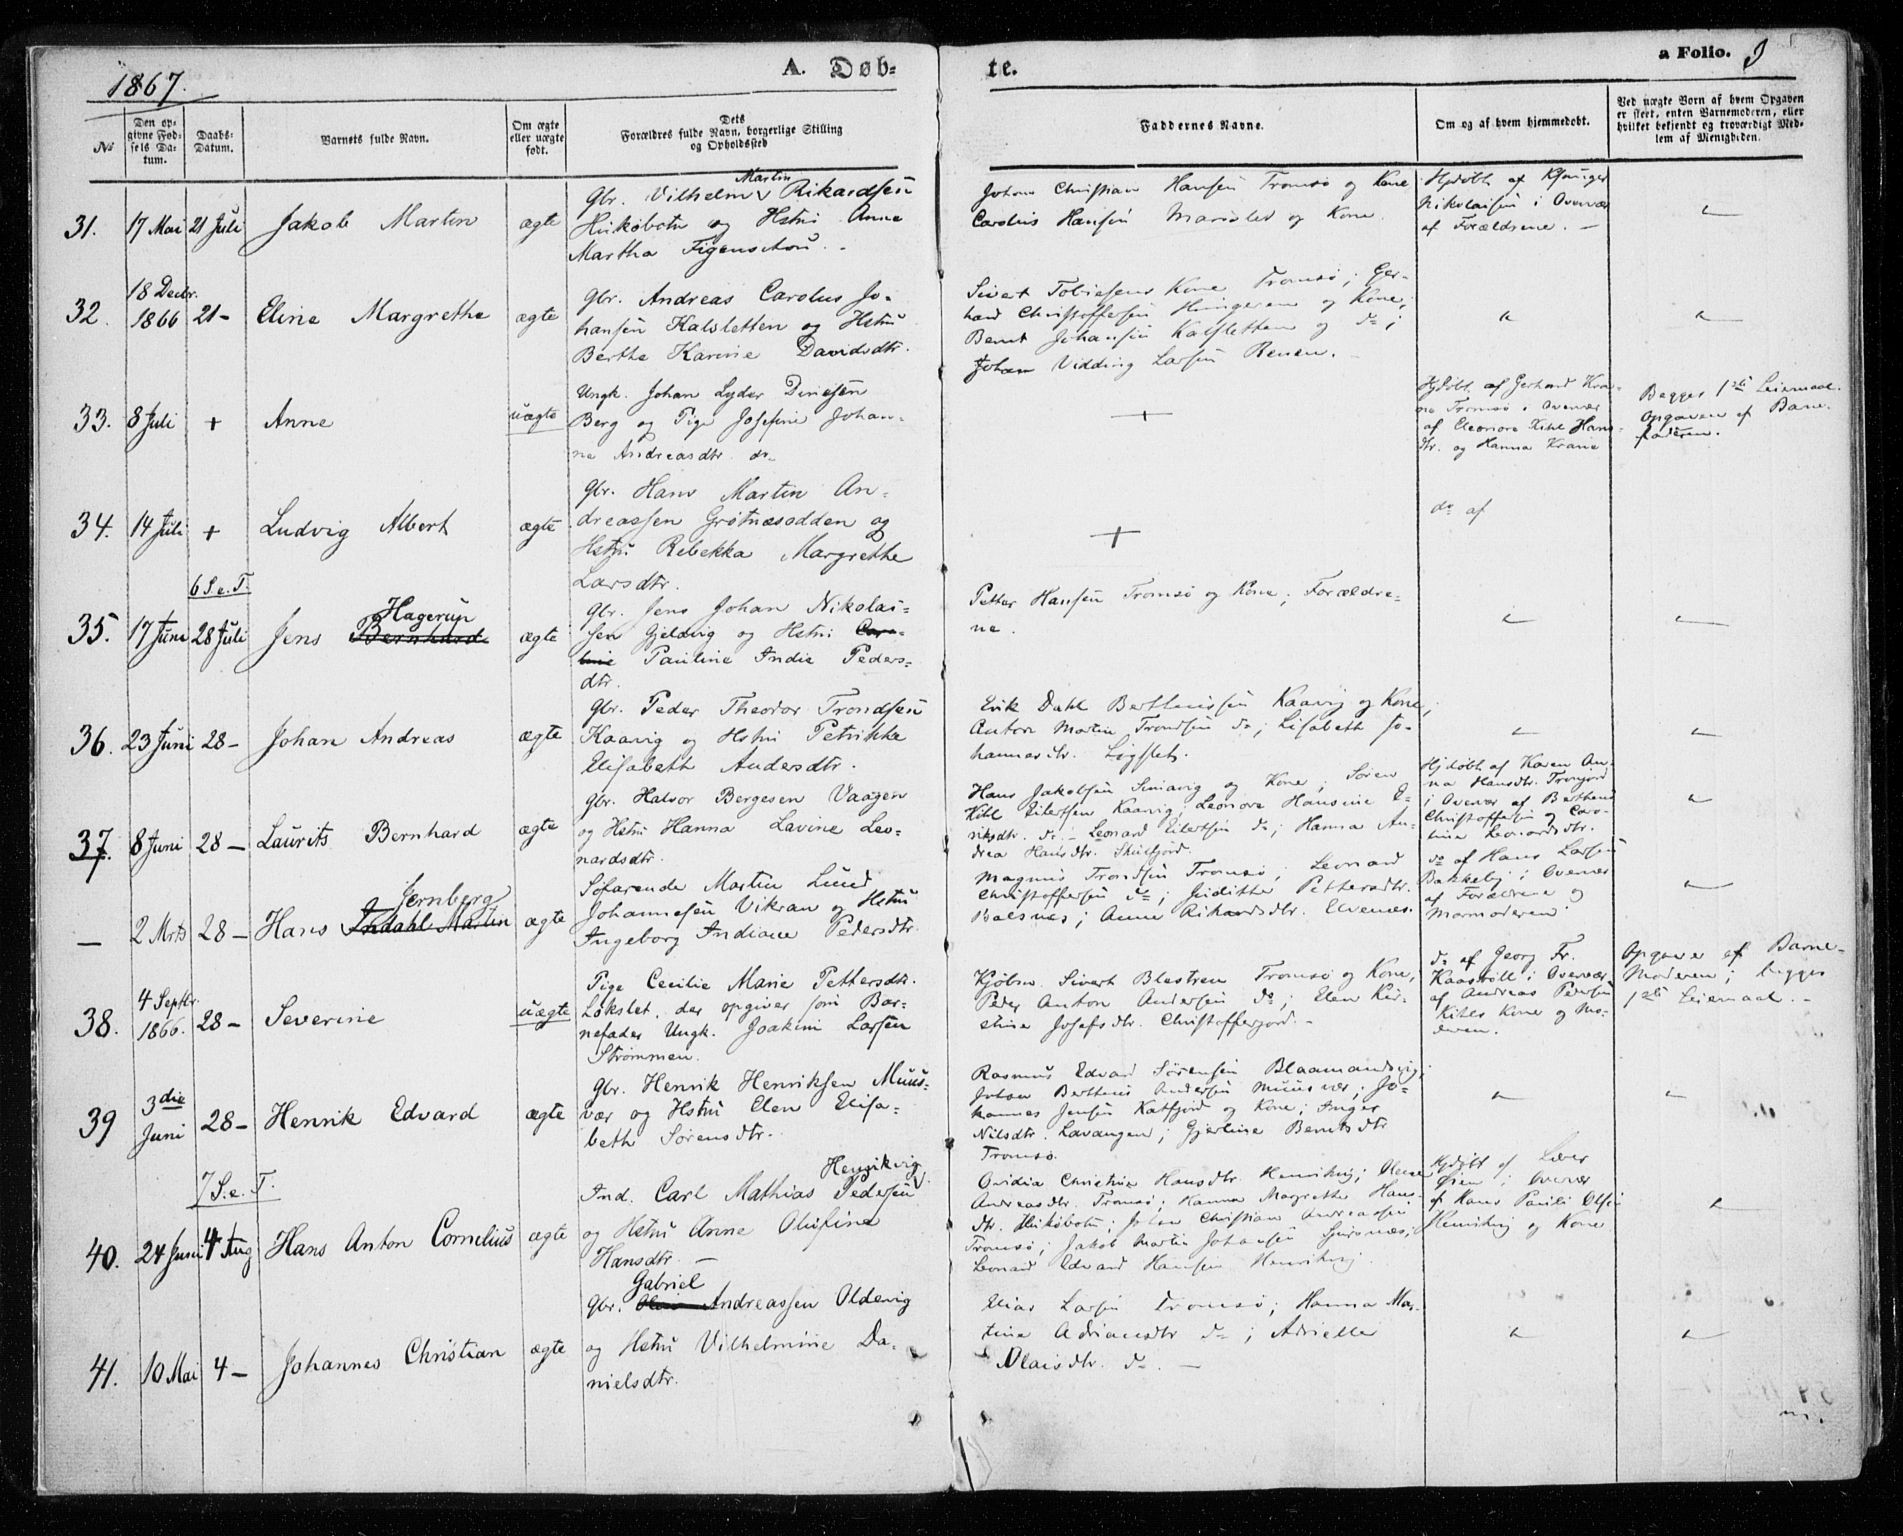 1867.
A. Døb-
te.
a Folio. 9
No
Den op-
givne Fød-
sels Da-
tum.
Daabs-
Datum.
Barnets fulde Navn.
Om ægte
eller uægte
født.
Dets
Forældres fulde Navn, borgerlige Stilling
og Opholdssted
Faddernes Navne.
Om og af hvem hjemmedøbt.
Ved uægte Børn af hvem Opgaven
er skeet, enten Barnemoderen, eller
hvilket bekjendt og troværdigt Med-
lem af Menigheden.
31. 17 Mai 21 Juli Jakob Martin ægte
Gbr. Vilhelm Martin Rikardsen
og Hstru Anne
Martha Figenschou.
Johan Christian Hansen Tromsø og Kone
Carolius Hansen og Kone.
Hjdøbt af
Nikolaisen i Overvær
af Forældrene. —
32. 18 Decbr. 1866 21 – Eline Margrethe ægte
Gbr. Andreas Carolus Jo-
hansen Kalsletten og Hstru
Berthe Karine Davidsdtr.
Sivert Tobiesens Kone Tromsø; Ger-
hard Christoffersen og Kone;
Bernt Johansen Kalsletten og do;
Johan Larsen Renen.
33. 8 Juli + Anne uægte
Ungk. Johan Lyder Dinesen
Berg og Pige Josefine Johan-
ne Andreasdtr. do
+
Hjdøbt af Gerhard Kra-
ne Tromsø i Overvær
af Eleonore Kihl Hans-
dtr. og Hanna Krane
Begges 1ste Leiermaal.
Opgaven af Barne-
faderen.
34. 14 Juli + Ludvig Albert ægte
Gbr. Hans Martin An-
dreassen Grøtnæsodden og
Hstru Rebekka Margrethe
Larsdtr.
+
do af
6 S. e. T.
35. 17 Juni 28 Juli Jens Hagerup Bernhard ægte
Gbr. Jens Johan Nikolai-
sen Gjelvig og Hstru Caro-
line Pauline Indie Peders-
dtr.
Petter Hansen Tromsø og Kone; Forældre-
ne.
36. 23 Juni 28 – Johan Andreas ægte
Gbr. Peder Theodor Trondsen
Kaavig og Hstru Petrikke
Elisabeth Andersdtr.
Erik Dahl Bertheussen Kaavig og Kone;
Anton Martin Trondsen do; Lisabeth Jo-
hannesdtr.
37. 8 Juni 28 – Laurits Bernhard ægte
Gbr. Halvor Bergesen Vaagen
og Hstru Hanna Lavine Leo-
nardsdtr.
Hans Jakobsen og Kone; Søren
Kihl Eilertsen Kaavig; Leonore Hansine E-
riksdtr. do – Leonard Eilertsen do; Hanna An-
drea Hansdtr. Skulsfjord.
Hjdøbt af Karen An-
na Hansdtr.
i Overvær af Bertheus
Christoffersen og Caro-
line Leonardsdtr.
— 2 Mrts 28 – Hans Jernberg Indahl Martin ægte
Søfarende Martin Lund
Johannesen Vikran og Hstru
Ingeborg Indiane Pedersdtr.
Magnus Trondsen Tromsø; Leonard
Christoffersen do; Judithe Pettersdtr.
Balsnes; Anne Rikardsdtr. Elvenes.
do af Hans Larsen
Bakkeby i Overvær
af Forældrene og
Mormoderen.
38. 4 Septbr. 1866. 28 – Severine uægte
Pige Cecilie Marie Pettersdtr.
Løkslet, der opgiver som Bar-
nefader Ungk. Joakim Larsen
Strømmen.
Kjøbm. Sivert Tromsø og Kone;
Peder Anton Andersen do; Elen Kir-
stine Josefsdtr. Christofferjord.
do af Georg Fr.
i Overvær
af Andreas Pedersen
Kihls Kone og Mo-
deren.
Opgaven af Barne-
Moderen; begges
1ste Leiermaal. –
39 3die Juni 28 – Henrik Edvard ægte
Gbr. Henrik Henriksen Muus-
vær og Hstru Elen Elisa-
beth Sørensdtr.
Rasmus Edvard Sørensen Blaamandsvig;
Johan Bertheus Andersen Muusvær; Jo-
hannes Jensen Katfjord og Kone; Inger
Nilsdtr. Lavangen; Gjertine Berntsdtr
Tromsø.
7 S. e. T.
40. 24 Juni 4 Aug Hans Anton Cornelius ægte
Ind. Carl Mathias Pedersen Henrikvig
og Hstru Anne Olufine
Hansdtr. —
Ovidia Christine Hansdtr. Henrikvig; Oline
Andreasdtr. Tromsø; Hanna Margrethe Hans-
dtr. Johan Christian Andreassen
Tromsø; Jakob Martin Johansen
Leonard Edvard Hansen Henrikvig.
Hjdøbt af Lærer
i Overvær
af Hans Pauli Olsen
Henrikvig og Kone
41. 10 Mai 4 – Johannes Christian ægte
Gbr. Gabriel Andreassen Oldevig
og Hstru Vilhelmine Da-
nielsdtr.
Elias Larsen Tromsø; Hanna Mar-
tine Adriansdtr do;
Olaisdtr. do. —